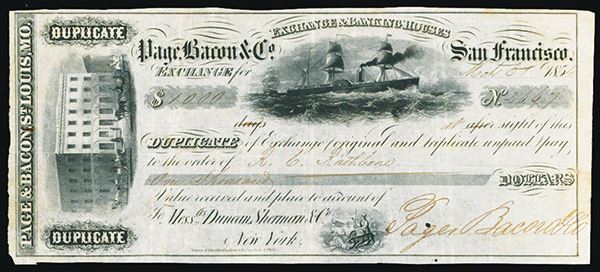 DUPLICATE
PAGE & BACON ST LOUIS, MO.
DUPLICATE
EXCHANGE & BANKING HOUSES
Page, Bacon & Co. San Francisco.
EXCHANGE for
$1,000 No
days at sight of this
DUPLICATE of Exchange (original and triplicate unpaid) pay
to the order of
One thousand DOLLARS
Value received and place to account of
To Messrs. Duncan, Sherman & Co.
New York. Page Bacon & Co